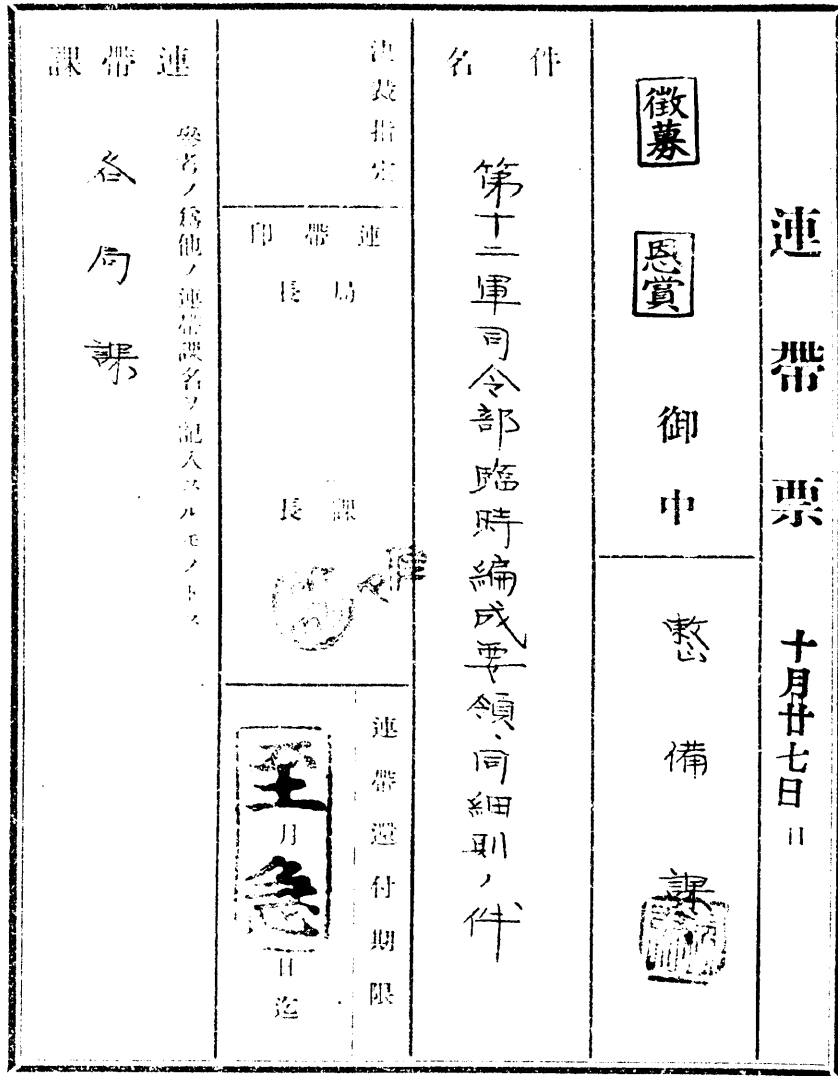 連帶票 十月廿七日 日
徵募 恩賞 御中
整備課
件名
第十二軍司令部臨時編成要領、同細則ノ件
決裁指定
連帶印
局長
課長
連帶還付期限
至急
月 日迄
連帶課
參考ノ爲他ノ連帶課名ヲ記入スルモノトス
各局課